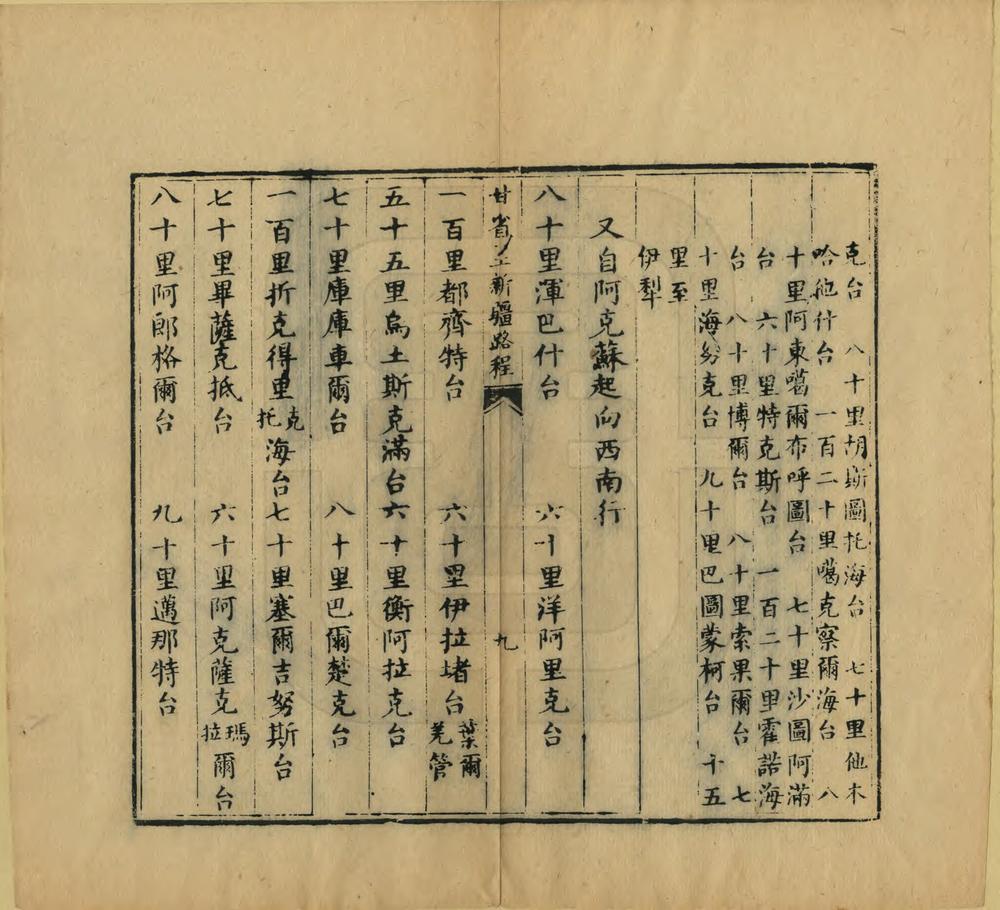 克台　八十里胡斯圖托海台　七十里他木
哈他什台　一百二十里噶克察爾海台　八
十里阿東噶爾布呼圖台　七十里沙圖阿滿
台　六十里特克斯台　一百二十里霍諾海
台　八十里博爾台　八十里索果爾台　七
十里海努克台　九十里巴圖蒙柯台　十五
里至
伊犁
又自阿克蘇起向西南行
八十里渾巴什台　六十里洋阿里克台
甘省至新疆路程　九
一百里都齊特台　六十里伊拉堵台葉爾羌管
五十五里烏土斯克滿台　六十里衡阿拉克台
七十里庫庫車爾台　八十里巴爾楚克台
一百里折克得里克托海台　七十里塞爾吉努斯台
七十里畢薩克抵台　六十里阿克薩克瑪拉爾台
八十里阿郎格爾台　九十里邁那特台